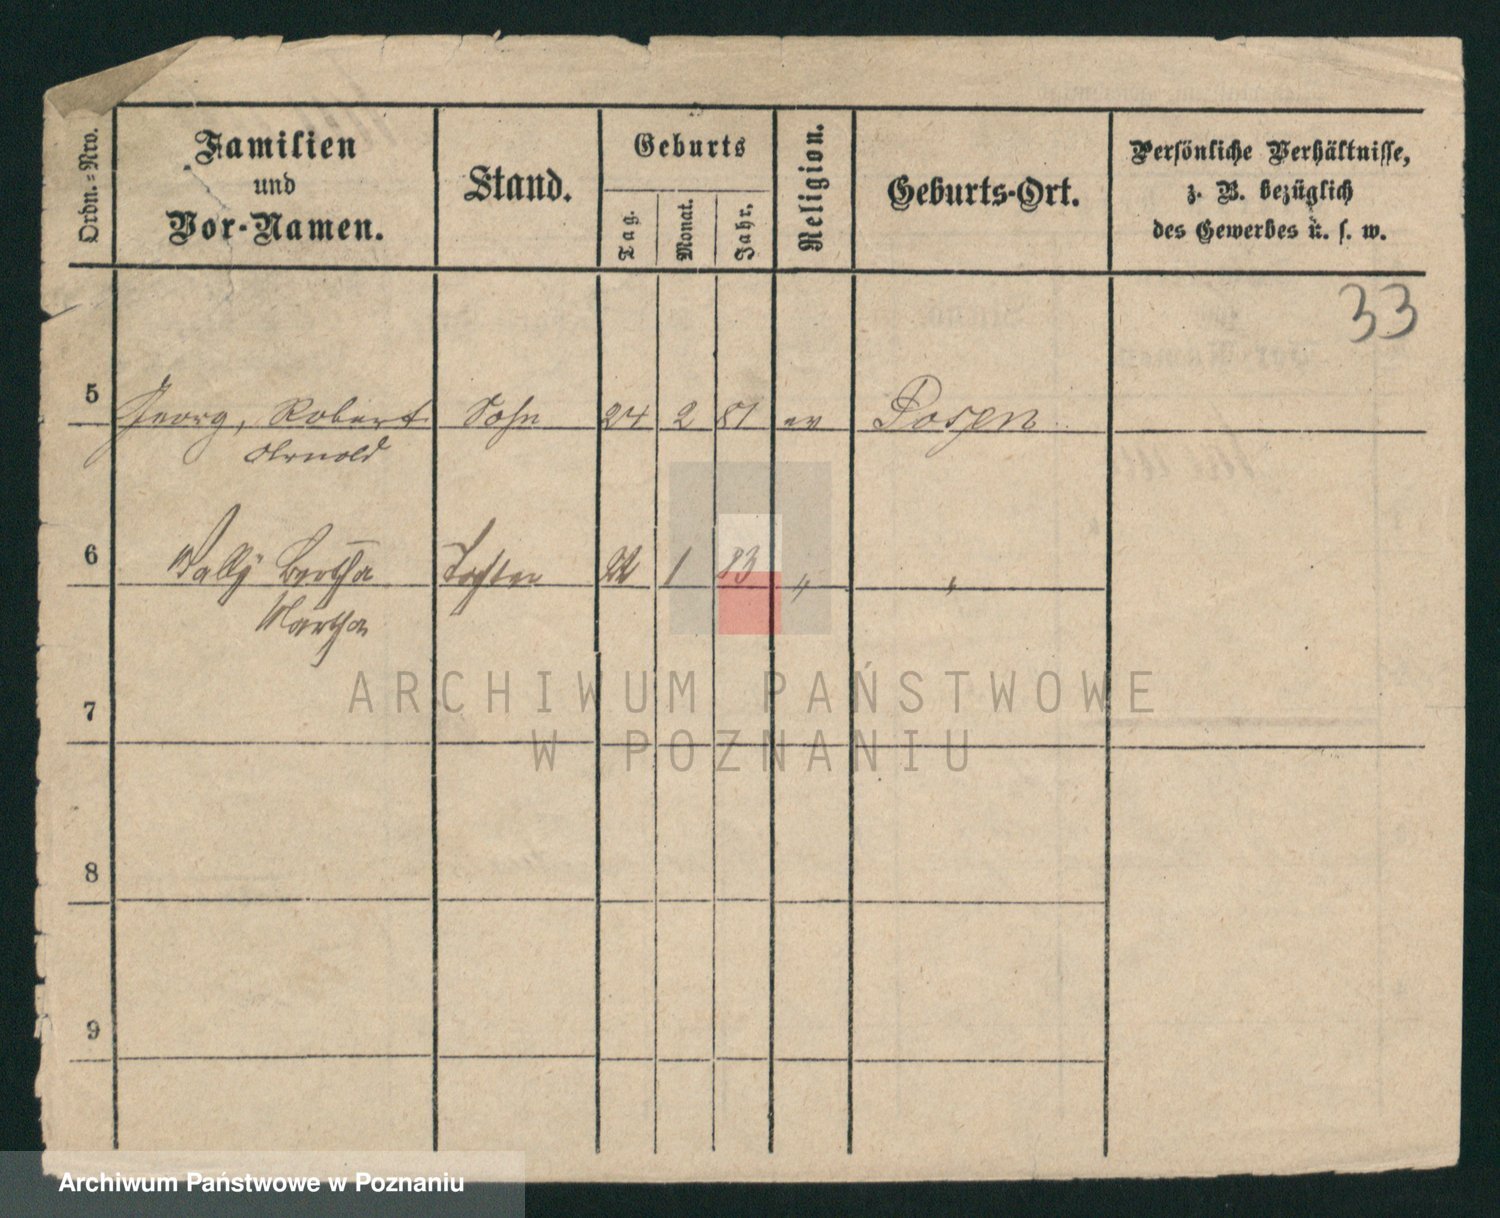 Ordn.=Nro.
Familien
und
Vor-Namen.
Stand.
Geburts
Tag.
Monat.
Jahr.
Religion.
Geburts-Ort.
Persönliche Verhältnisse,
z. B. bezüglich
des Gewerbes u. s. w.
33
5 Georg, Robert Sohn 24 2 81 ev Posen
Arnold
6 Wally Bertha Tochter 22 1 83 " "
Martha
7
8
9
ARCHIWUM PAŃSTWOWE
W POZNANIU
Archiwum Państwowe w Poznaniu